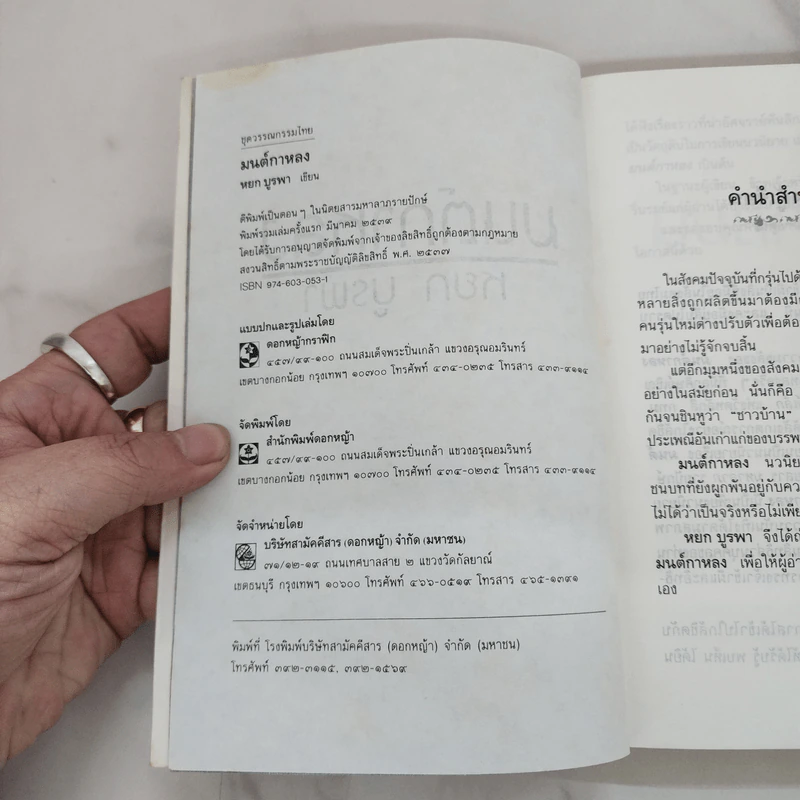 ชุดวรรณกรรมไทย
มนต์กาหลง
หยก บูรพา เขียน
ตีพิมพ์เป็นตอน ๆ ในนิตยสารมหาลาภรายปักษ์
พิมพ์รวมเล่มครั้งแรก มีนาคม ๒๕๓๙
โดยได้รับการอนุญาตจัดพิมพ์จากเจ้าของลิขสิทธิ์ถูกต้องตามกฎหมาย
สงวนสิทธิ์ตามพระราชบัญญัติลิขสิทธิ์ พ.ศ. ๒๕๓๗
ISBN 974-603-053-1
แบบปกและรูปเล่มโดย
ดอกหญ้ากราฟิก
๔๕๗/๙๙-๑๐๐ ถนนสมเด็จพระปิ่นเกล้า แขวงอรุณอมรินทร์
เขตบางกอกน้อย กรุงเทพฯ ๑๐๗๐๐ โทรศัพท์ ๔๓๔-๐๒๓๕ โทรสาร ๔๓๓-๙๑๑๔
จัดพิมพ์โดย
สำนักพิมพ์ดอกหญ้า
๔๕๗/๙๙-๑๐๐ ถนนสมเด็จพระปิ่นเกล้า แขวงอรุณอมรินทร์
เขตบางกอกน้อย กรุงเทพฯ ๑๐๗๐๐ โทรศัพท์ ๔๓๔-๐๒๓๕ โทรสาร ๔๓๓-๙๑๑๔
จัดจำหน่ายโดย
บริษัทสามัคคีสาร (ดอกหญ้า) จำกัด (มหาชน)
๗๑/๑๒-๑๙ ถนนเทศบาลสาย ๒ แขวงวัดกัลยาณ์
เขตธนบุรี กรุงเทพฯ ๑๐๖๐๐ โทรศัพท์ ๔๖๖-๐๕๑๙ โทรสาร ๔๖๕-๑๓๙๑
พิมพ์ที่ โรงพิมพ์บริษัทสามัคคีสาร (ดอกหญ้า) จำกัด (มหาชน)
โทรศัพท์ ๓๙๒-๓๑๑๕, ๓๙๒-๑๕๖๙
คำนำสำน
ในสังคมปัจจุบันที่กรุ่นไปด้
หลายสิ่งถูกผลิตขึ้นมาต้องมีา
คนรุ่นใหม่ต่างปรับตัวเพื่อต้อ
มาอย่างไม่รู้จักจบสิ้น
แต่อีกมุมหนึ่งของสังคม
อย่างในสมัยก่อน นั่นก็คือ
กันจนชินหูว่า “ชาวบ้าน”
ประเพณีอันเก่าแก่ของบรรพ
มนต์กาหลง นวนิย
ชนบทที่ยังผูกพันอยู่กับคว
ไม่ได้ว่าเป็นจริงหรือไม่เพีย
หยก บูรพา จึงได้ถ
มนต์กาหลง เพื่อให้ผู้อ่า
เอง